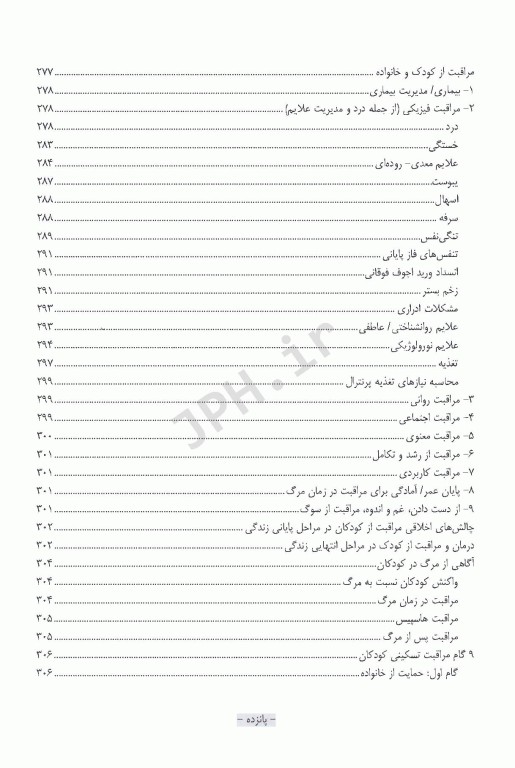 مراقبت از کودک و خانواده ........ ۲۷۷
۱- بیماری/ مدیریت بیماری ........ ۲۷۸
۲- مراقبت فیزیکی (از جمله درد و مدیریت علایم) ........ ۲۷۸
درد ........ ۲۷۸
خستگی ........ ۲۸۳
علایم معدی- روده‌ای ........ ۲۸۴
یبوست ........ ۲۸۷
اسهال ........ ۲۸۸
سرفه ........ ۲۸۸
تنگی‌نفس ........ ۲۸۹
تنفس‌های فاز پایانی ........ ۲۹۱
انسداد ورید اجوف فوقانی ........ ۲۹۱
زخم بستر ........ ۲۹۱
مشکلات ادراری ........ ۲۹۳
علایم روانشناختی/ عاطفی ........ ۲۹۳
علایم نورولوژیکی ........ ۲۹۴
تغذیه ........ ۲۹۷
محاسبه نیازهای تغذیه پرنترال ........ ۲۹۹
۳- مراقبت روانی ........ ۲۹۹
۴- مراقبت اجتماعی ........ ۲۹۹
۵- مراقبت معنوی ........ ۳۰۰
۶- مراقبت از رشد و تکامل ........ ۳۰۱
۷- مراقبت کاربردی ........ ۳۰۱
۸- پایان عمر/ آمادگی برای مراقبت در زمان مرگ ........ ۳۰۱
۹- از دست دادن، غم و اندوه، مراقبت از سوگ ........ ۳۰۱
چالش‌های اخلاقی مراقبت از کودکان در مراحل پایانی زندگی ........ ۳۰۲
درمان و مراقبت از کودک در مراحل انتهایی زندگی ........ ۳۰۲
آگاهی از مرگ در کودکان ........ ۳۰۴
واکنش کودکان نسبت به مرگ ........ ۳۰۴
مراقبت در زمان مرگ ........ ۳۰۴
مراقبت هاسپیس ........ ۳۰۵
مراقبت پس از مرگ ........ ۳۰۵
۹ گام مراقبت تسکینی کودکان ........ ۳۰۶
گام اول: حمایت از خانواده ........ ۳۰۶
- پانزده -
JPH.ir